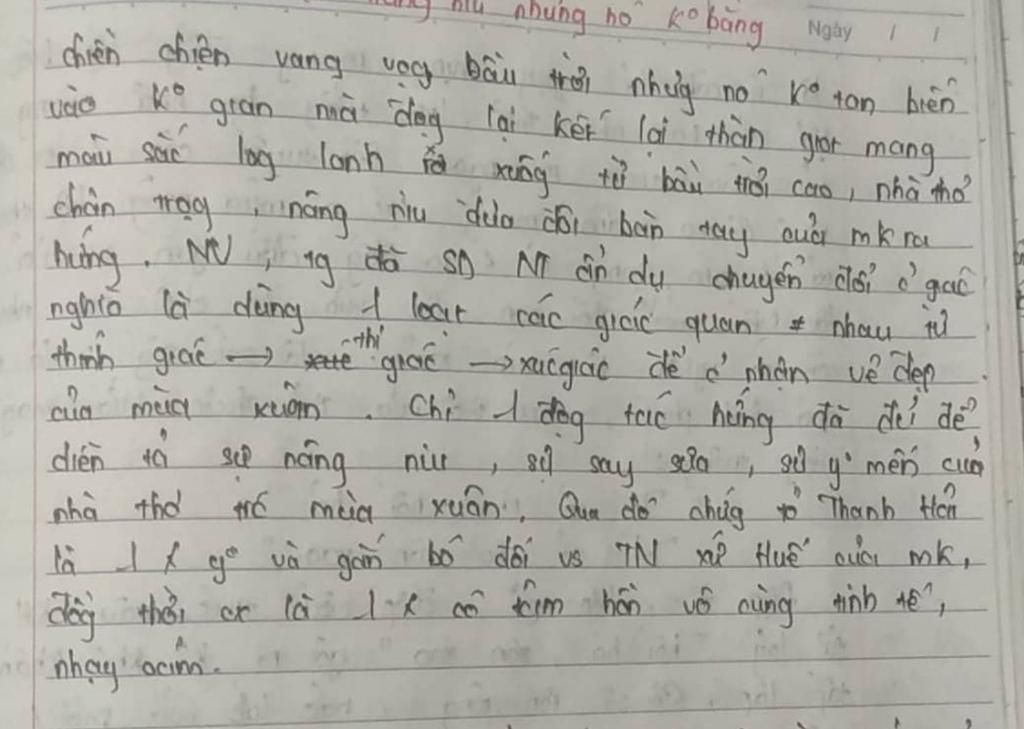 nâng niu nhưng nó kº bằng
Ngày / /
chiền chiện vang vọg bầu trời nhưg nó kº tan biến
vào kº gian mà đọg lại kết lại thàn giọt mang
màu sắc log lanh rơi xuống từ bầu trời cao, nhà thơ
chân trọg, nâng niu đưa đôi bàn tay của mk ra
hứng. NV, tg đã SD NT ẩn dụ chuyển đổi c giác
nghĩa là dùng 1 loạt các giác quan ≠ nhau từ
thính giác → thị giác → xúc giác để c nhận vẻ đẹp
của mùa xuân. Chỉ 1 độg tác hứng đã đủ để
diễn tả sự nâng niu, sự say sưa, sự y mến của
nhà thơ trc mùa xuân. Qua đó chứg tỏ Thanh Hải
là 1 ng và gắn bó đối vs TN xứ Huế của mk,
đồg thời cx là 1 có tâm hồn vô cùng tinh tế,
nhạy cảm.